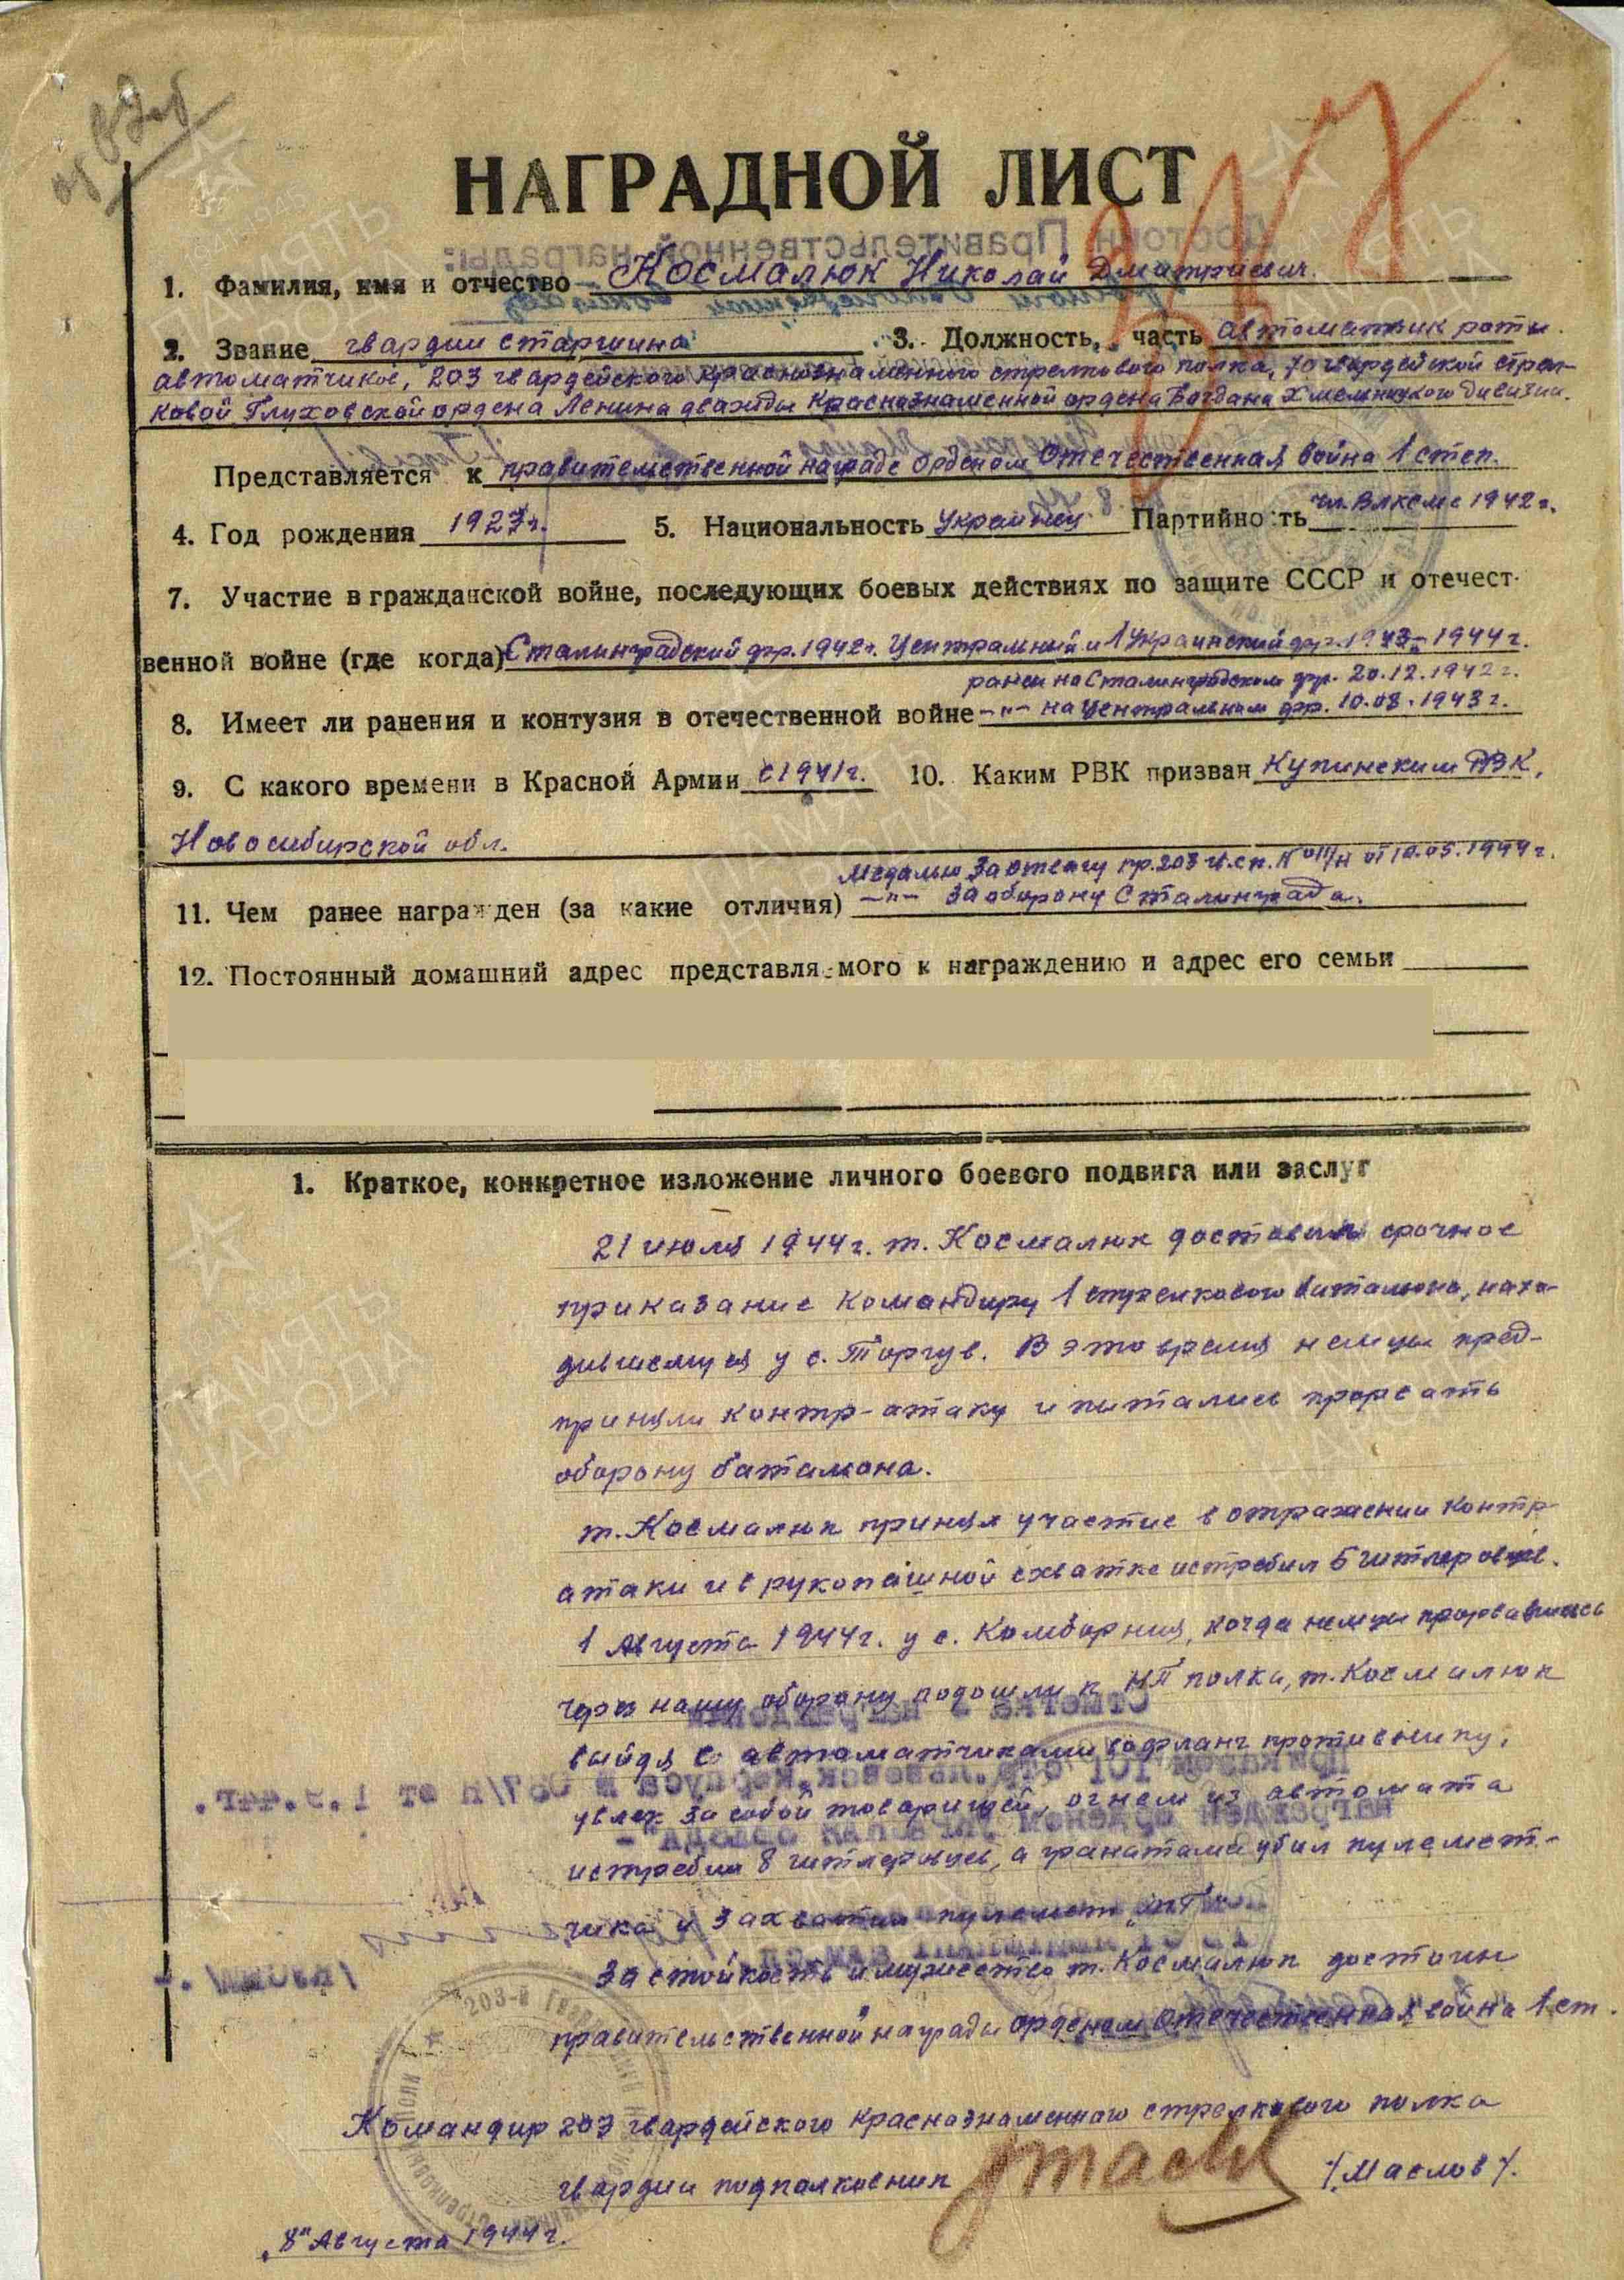 НАГРАДНОЙ ЛИСТ
1. Фамилия, имя и отчество Космалюк Николай Дмитриевич.
2. Звание гвардии старшина 3. Должность, часть автоматчик роты
автоматчиков, 203 гвардейского Краснознаменного стрелкового полка, 70 гвардейской стрел-
ковой Глуховской ордена Ленина дважды Краснознаменной ордена Богдана Хмельницкого дивизии.
Представляется к правительственной награде орденом Отечественная война 1 степ.
4. Год рождения 1923 г. 5. Национальность Украинец Партийность чл. ВЛКСМ с 1942 г.
7. Участие в гражданской войне, последующих боевых действиях по защите СССР и отечест-
венной войне (где когда) Сталинградский фр. 1942 г. Центральный и 1 Украинский фр. 1943-1944 г.
ранен на Сталинградском фр. 20.12.1942 г.
8. Имеет ли ранения и контузия в отечественной войне -"- на Центральном фр. 10.08.1943 г.
9. С какого времени в Красной Армии с 1941 г. 10. Каким РВК призван Купинским РВК,
Новосибирской обл.
Медалью За отвагу пр. 203 г.с.п. № 011/н от 10.05.1944 г.
11. Чем ранее награжден (за какие отличия) -"- За оборону Сталинграда.
12. Постоянный домашний адрес представляемого к награждению и адрес его семьи
1. Краткое, конкретное изложение личного боевого подвига или заслуг
21 июля 1944 г. т. Космалюк доставил срочное
приказание командиру 1 стрелкового батальона, нахо-
дившемуся у с. Торгув. В это время немцы пред-
приняли контр-атаку и пытались прорвать
оборону батальона.
т. Космалюк принял участие в отражении контр-
атаки и в рукопашной схватке истребил 5 гитлеровцев.
1 Августа 1944 г. у с. Комборния, когда немцы прорвавшись
через нашу оборону подошли к НП полка, т. Космалюк
выйдя с автоматчиками во фланг противнику,
увлек за собой товарищей, огнем из автомата
истребил 8 гитлеровцев, а гранатами убил пулемет-
чика и захватил пулемет
За стойкость и мужество т. Космалюк достоин
правительственной награды орденом Отечественная война 1 ст.
Командир 203 гвардейского Краснознаменного стрелкового полка
гвардии подполковник /Маслов/.
„8" Августа 1944 г.